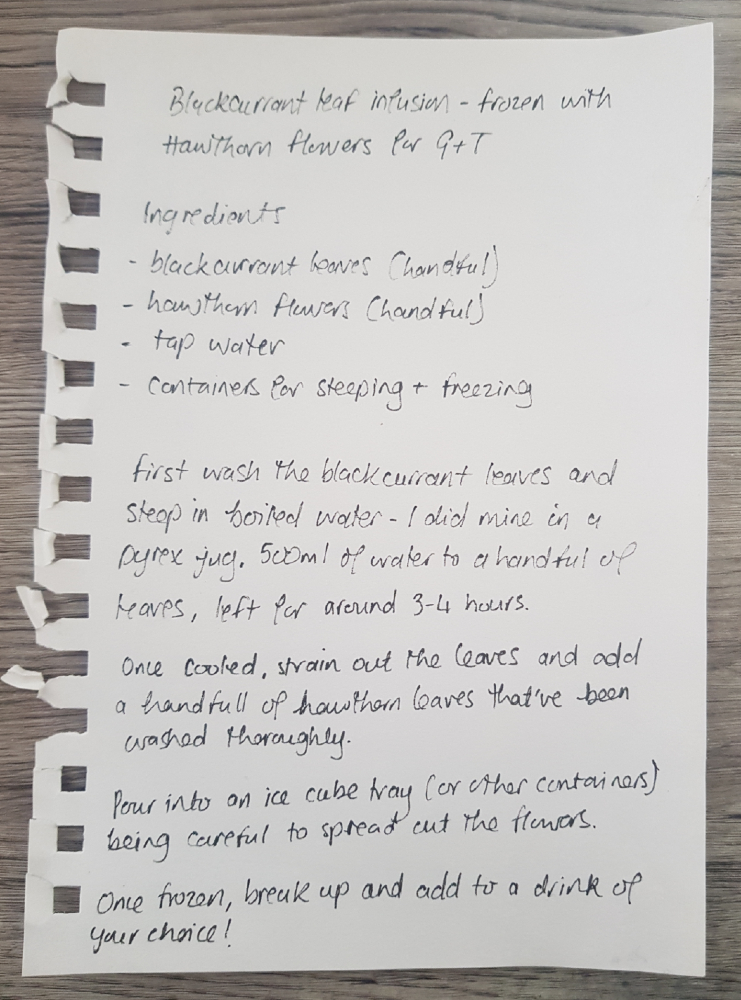 Blackcurrant leaf infusion - frozen with
Hawthorn flowers for G+T
Ingredients
- blackcurrant leaves (handful)
- hawthorn flowers (handful)
- tap water
- containers for steeping + freezing
First wash the blackcurrant leaves and
steep in boiled water - I did mine in a
pyrex jug. 500ml of water to a handful of
leaves, left for around 3-4 hours.
Once cooled, strain out the leaves and add
a handfull of hawthorn leaves that've been
washed thoroughly.
Pour into an ice cube tray (or other containers)
being careful to spread out the flowers.
Once frozen, break up and add to a drink of
your choice!